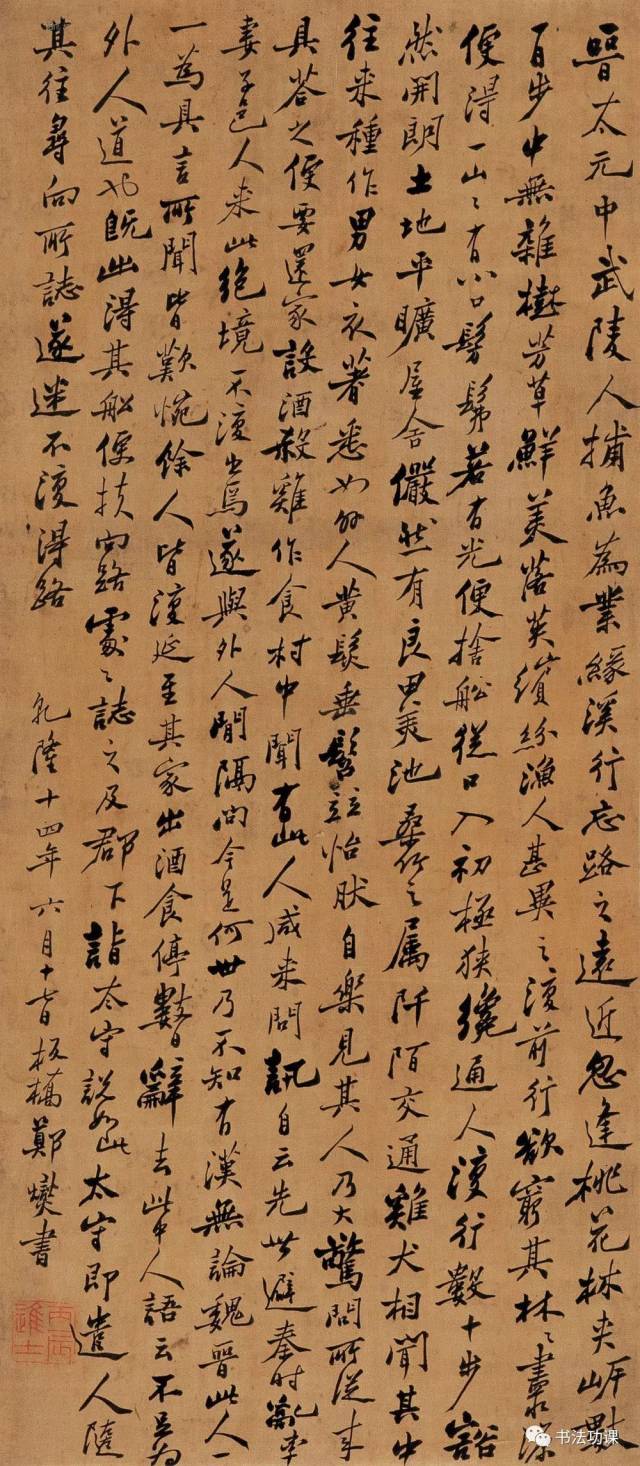 晉太元中武陵人捕魚為業緣溪行忘路之遠近忽逢桃花林夾岸數
百步中無雜樹芳草鮮美落英繽紛漁人甚異之復前行欲窮其林〻盡水源
便得一山〻有小口髣髴若有光便捨船從口入初極狹纔通人復行數十步豁
然開朗土地平曠屋舍儼然有良田美池桑竹之属阡陌交通雞犬相聞其中
往来種作男女衣著悉如外人黄髮垂髫竝怡然自樂見其人乃大驚問所從来
具荅之便要還家設酒殺雞作食村中聞有此人咸来問訊自云先世避秦時亂率
妻子邑人来此絶境不復出焉遂與外人間隔問今是何世乃不知有漢無論魏晉此人一
一為具言所聞皆歎惋餘人皆復延至其家出酒食停數日辭去此中人語云不足為
外人道也既出得其船便扶向路處〻誌之及郡下詣太守説如此太守即遣人隨
其往尋向所誌遂迷不復得路
乾隆十四年六月十日板橋鄭燮書
丙辰進士
书法功课